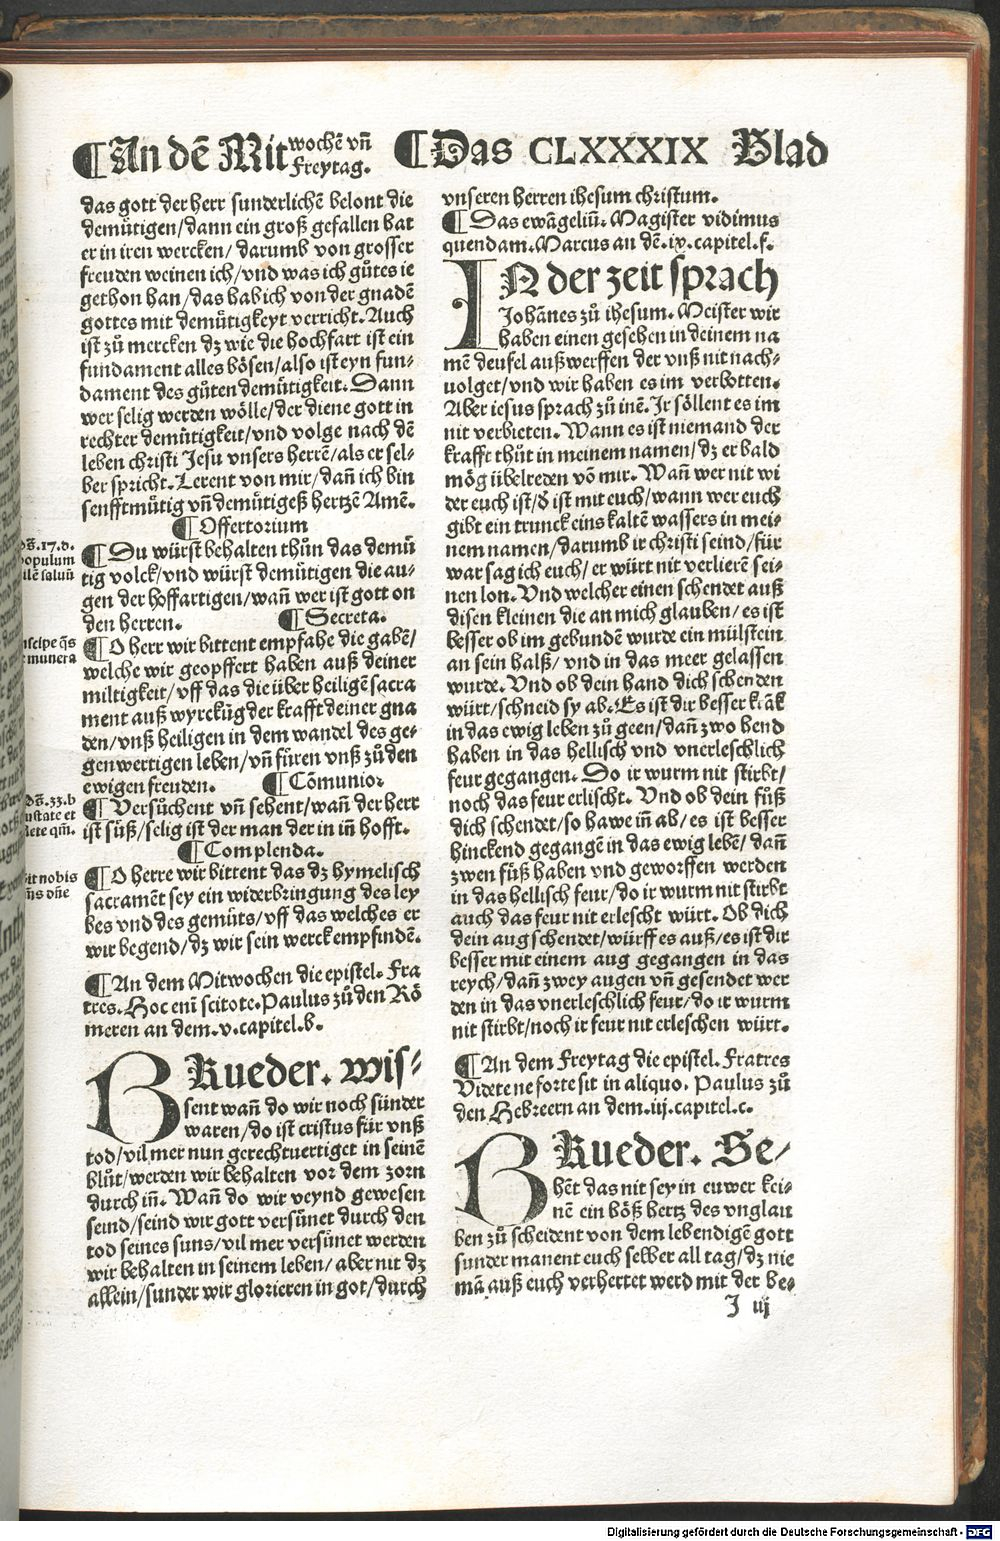 ¶An dē Mit wochē vn̄ Freytag. ¶Das CLXXXIX Blad
das gott der herr sunderlichē belont die
demütigen/dann ein groß gefallen hat
er in iren wercken/ darumb von grosser
freuden weinen ich/vnd was ich gůtes ie
gethon han/das hab ich von der gnadē
gottes mit demütigkeyt verricht. Auch
ist zů mercken dz wie die hochfart ist ein
fundament alles bösen/also ist eyn fun-
dament des gůten demütigkeit. Dann
wer selig werden wölle/der diene gott in
rechter demütigkeit/vnd volge nach dē
leben christi Jesu vnsers herrē/als er sel-
ber spricht. Lerent von mir/dan̄ ich bin
senfftmütig vn̄ demütigeß hertzē Amē.
¶Offertorium
¶Du würst behalten thůn das demü
tig volck/vnd würst demütigen die au-
gen der hoffartigen/wan̄ wer ist gott on
den herren. ¶Secreta.
¶O herr wir bittent empfahe die gabē/
welche wir geopffert haben auß deiner
miltigkeit/vff das die über heiligē sacra
ment auß wyrckūg der krafft deiner gna
den/vnß heiligen in dem wandel des ge-
genwertigen leben/vn̄ füren vnß zů den
ewigen freuden. ¶Cōmunio
¶Versůchent vn̄ sehent/wan̄ der herr
ist süß/selig ist der man der in in̄ hofft.
¶Complenda.
¶O herre wir bittent das dz hymelisch
sacramēt sey ein widerbringung des ley
bes vnd des gemüts/vff das welches er
wir begend/dz wir sein werck empfindē.
¶An dem Mitwochen die epistel. Fra
tres. Hoc enī scitote. Paulus zů den Rö
meren an dem .v. capitel .b.
BRueder. wis-
sent wan̄ do wir noch sünder
waren/do ist cristus für vnß
tod/vil mer nun gerechtuertiget in seinē
blůt/werden wir behalten vor dem zorn
durch in̄. Wan̄ do wir veynd gewesen
seind/seind wir gott versünet durch den
tod seines suns/vil mer versünet werden
wir behalten in seinem leben/aber nit dz
allein/sunder wir glorieren in got/durch
17.d.
populum
saluū
q̄s
munera
33.b
gustate et
dete qm̄.
Sit nobis
dn̄e
vnseren herren ihesum christum.
¶Das ewāgeliū. Magister vidimus
quendam. Marcus an dē .ix. capitel .f.
IN der zeit sprach
Johānes zů ihesum. Meister wir
haben einen gesehen in deinem na
mē deufel außwerffen der vnß nit nach-
uolget/vnd wir haben es im verbotten.
Aber iesus sprach zů inē. Ir söllent es im
nit verbieten. Wann es ist niemand der
krafft thůt in meinem namen/dz er bald
mög übelreden vō mir. Wan̄ wer nit wi
der euch ist/d̄ ist mit euch/wann wer euch
gibt ein trunck eins kaltē wassers in mei-
nem namen/darumb ir christi seind/für
war sag ich euch/er würt nit verlierē sei-
nen lon. Vnd welcher einen schendet auß
disen kleinen die an mich glauben/es ist
besser ob im gebundē wurde ein mülstein
an sein halß/vnd in das meer gelassen
wurde. Vnd ob dein hand dich schenden
würt/schneid sy ab. Es ist dir besser krāk
in das ewig leben zů geen/dan̄ zwo hend
haben in das hellisch vnd vnerleschlich
feur gegangen. Do ir wurm nit stirbt/
noch das feur erlischt. Vnd ob dein fůß
dich schendet/so hawe in̄ ab/es ist besser
hinckend gegangē in das ewig lebē/dan̄
zwen füß haben vnd geworffen werden
in das hellisch feur/do ir wurm nit stirbt
auch das feur nit erlescht würt. Ob dich
dein aug schendet/würff es auß/es ist dir
besser mit einem aug gegangen in das
reych/dan̄ zwey augen vn̄ gesendet wer
den in das vnerleschlich feur/do ir wurm
nit stirbt/noch ir feur nit erleschen würt.
¶An dem Freytag die epistel. Fratres
Videte ne forte sit in aliquo. Paulus zů
den Hebreern an dem .iij. capitel .c.
BRueder. Se-
hēt das nit sey in euwer kei-
nē ein böß hertz des vnglau
ben zů scheident von dem lebendigē gott
sunder manent euch selber all tag/dz nie
mā auß euch verhertet werd mit der be-
J iij
Digitalisierung gefördert durch die Deutsche Forschungsgemeinschaft - DFG